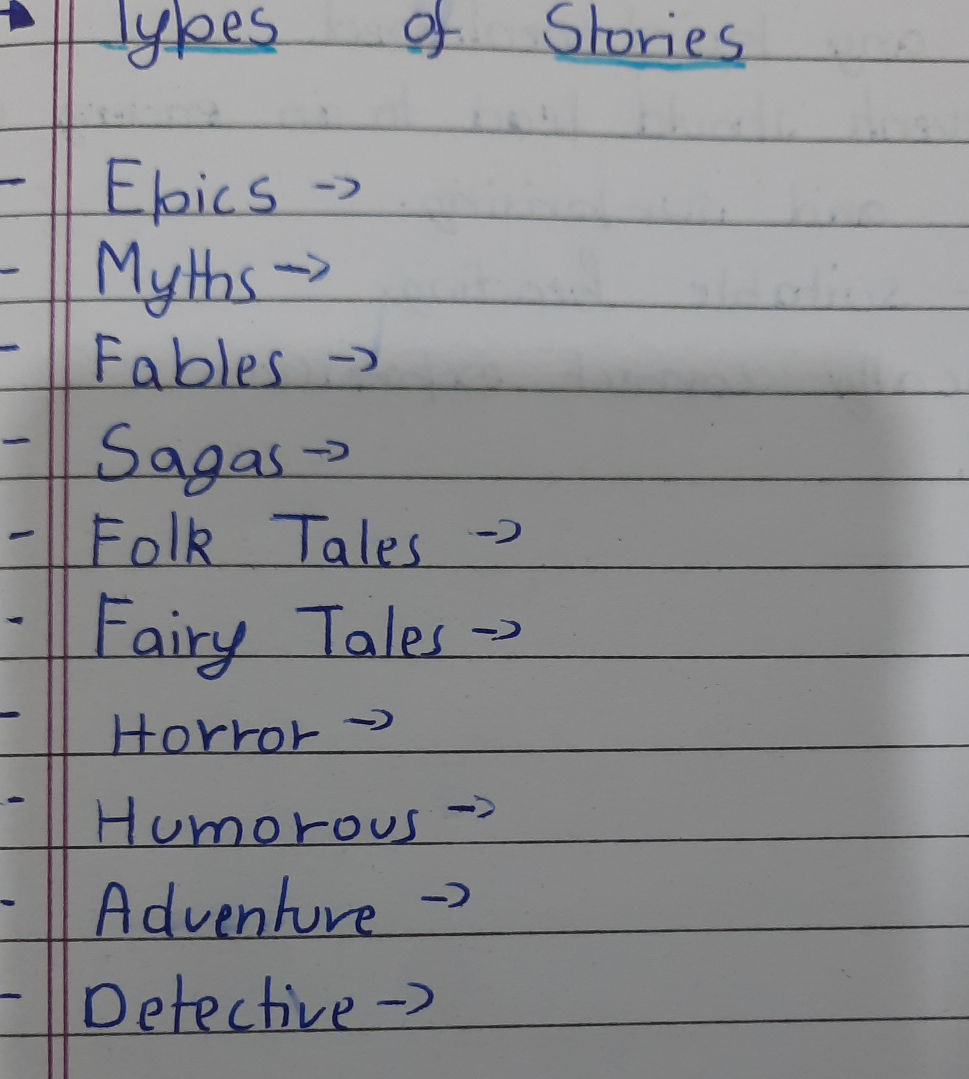 → Types of Stories
- Epics ->
- Myths ->
- Fables ->
- Sagas ->
- Folk Tales ->
- Fairy Tales ->
- Horror ->
- Humorous ->
- Adventure ->
- Detective ->